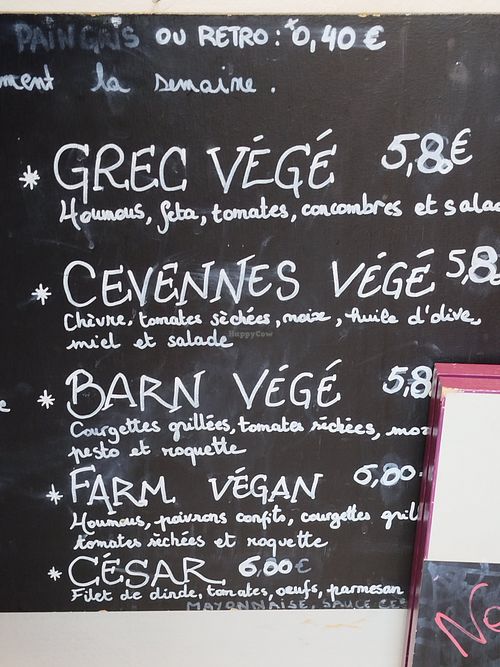 PAIN GRIS OU RETRO : + 0,40 €
ment la semaine.
* GREC VÉGÉ 5,8 €
Houmous, feta, tomates, concombres et salad
* CEVENNES VÉGÉ 5,8
Chèvre, tomates sèchées, noix, huile d'olive,
miel et salade
* BARN VÉGÉ 5,8
Courgettes grillées, tomates sèchées,
pesto et roquette
* FARM VÉGAN 6,00
Houmous, poivrons confits, courgettes gril
tomates sèchées et roquette
* CÉSAR 6,00 €
Filet de dinde, tomates, oeufs, parmesan
MAYONNAISE, SAUCE CE
HappyCow